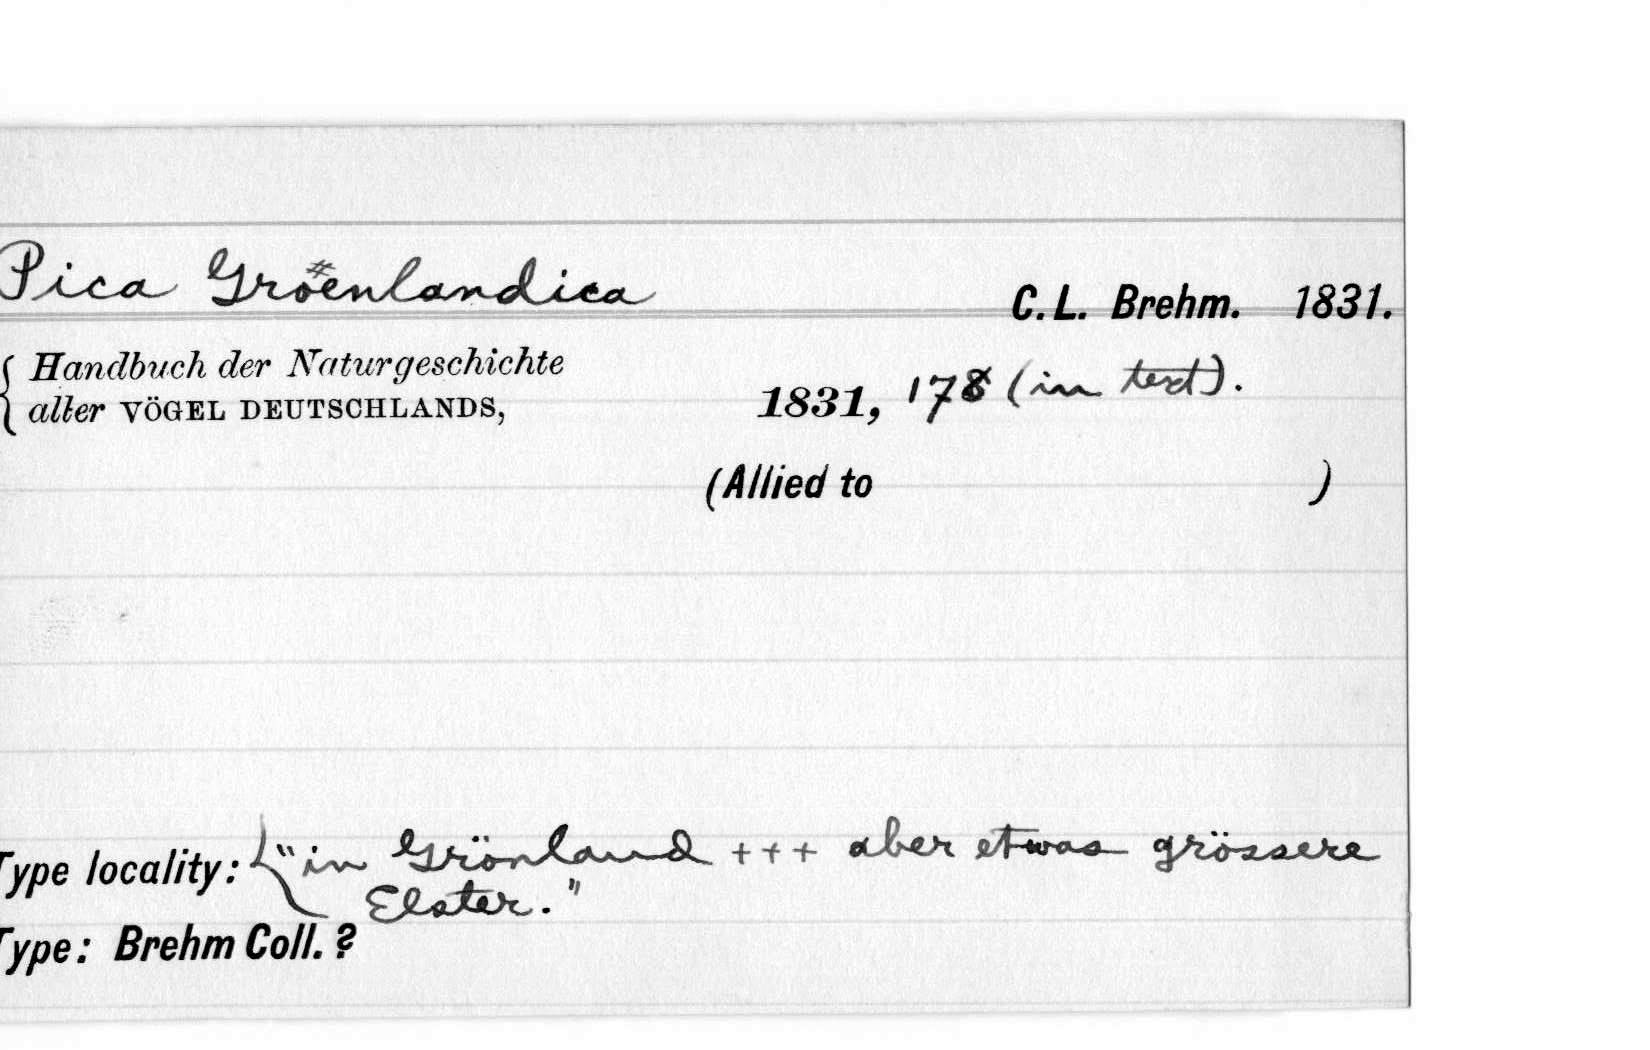 Pica Groenlandica
C.L. Brehm. 1831.
Handbuch der Naturgeschichte
aller VÖGEL DEUTSCHLANDS,
1831, 178 (in text).
(Allied to )
Type locality: "in Grönland +++ aber etwas grössere
Elster."
Type: Brehm Coll. ?